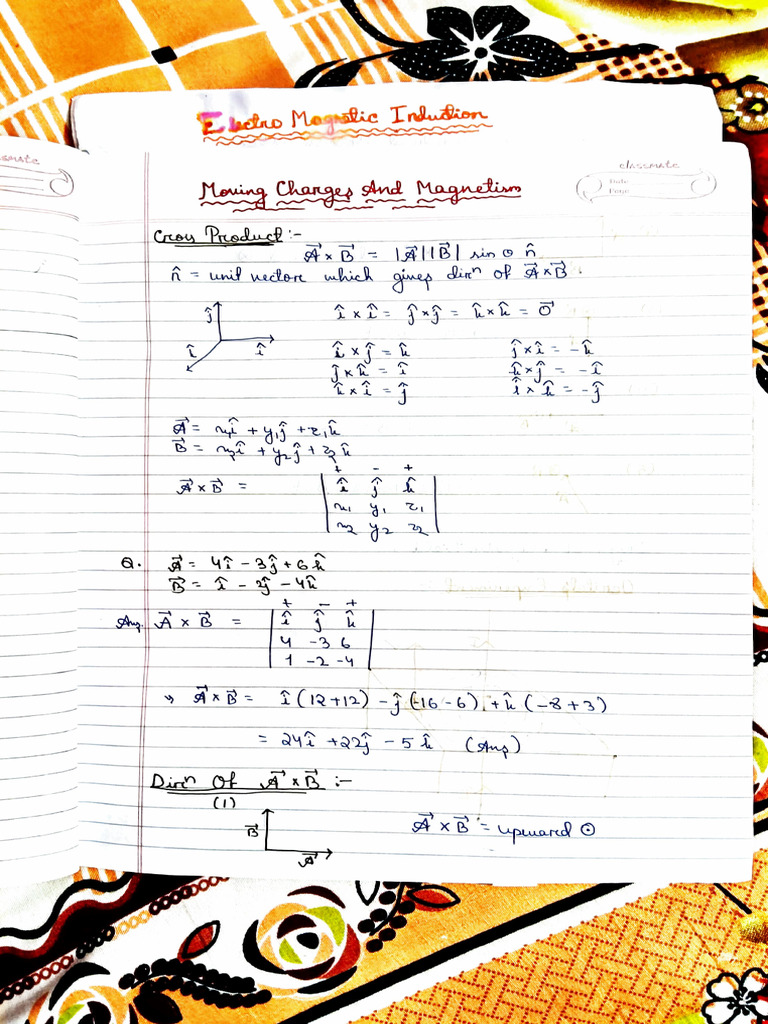 Electro Magnetic Induction
classmate
Date
Page
Moving Charges And Magnetism
Cross Product :-
A⃗ × B⃗ = |A⃗||B⃗| sin θ n̂
n̂ = unit vector which gives dirⁿ of A⃗×B⃗
ĵ
î × î = ĵ × ĵ = k̂ × k̂ = 0⃗
î
î × ĵ = k̂ ĵ × î = -k̂
ĵ × k̂ = î k̂ × ĵ = -î
k̂ × î = ĵ î × k̂ = -ĵ
A⃗ = x₁î + y₁ĵ + z₁k̂
B⃗ = x₂î + y₂ĵ + z₂k̂
+ - +
A⃗ × B⃗ = | î ĵ k̂ |
x₁ y₁ z₁
x₂ y₂ z₂
Q. A⃗ = 4î - 3ĵ + 6k̂
B⃗ = î - 2ĵ - 4k̂
+ - +
Ans. A⃗ × B⃗ = | î ĵ k̂ |
4 -3 6
1 -2 -4
⇒ A⃗ × B⃗ = î (12+12) - ĵ (-16-6) + k̂ (-8+3)
= 24î + 22ĵ - 5k̂ (Ans)
Dirⁿ Of A⃗ × B⃗ :-
(1)
B⃗ A⃗ × B⃗ = upward ⊙
A⃗